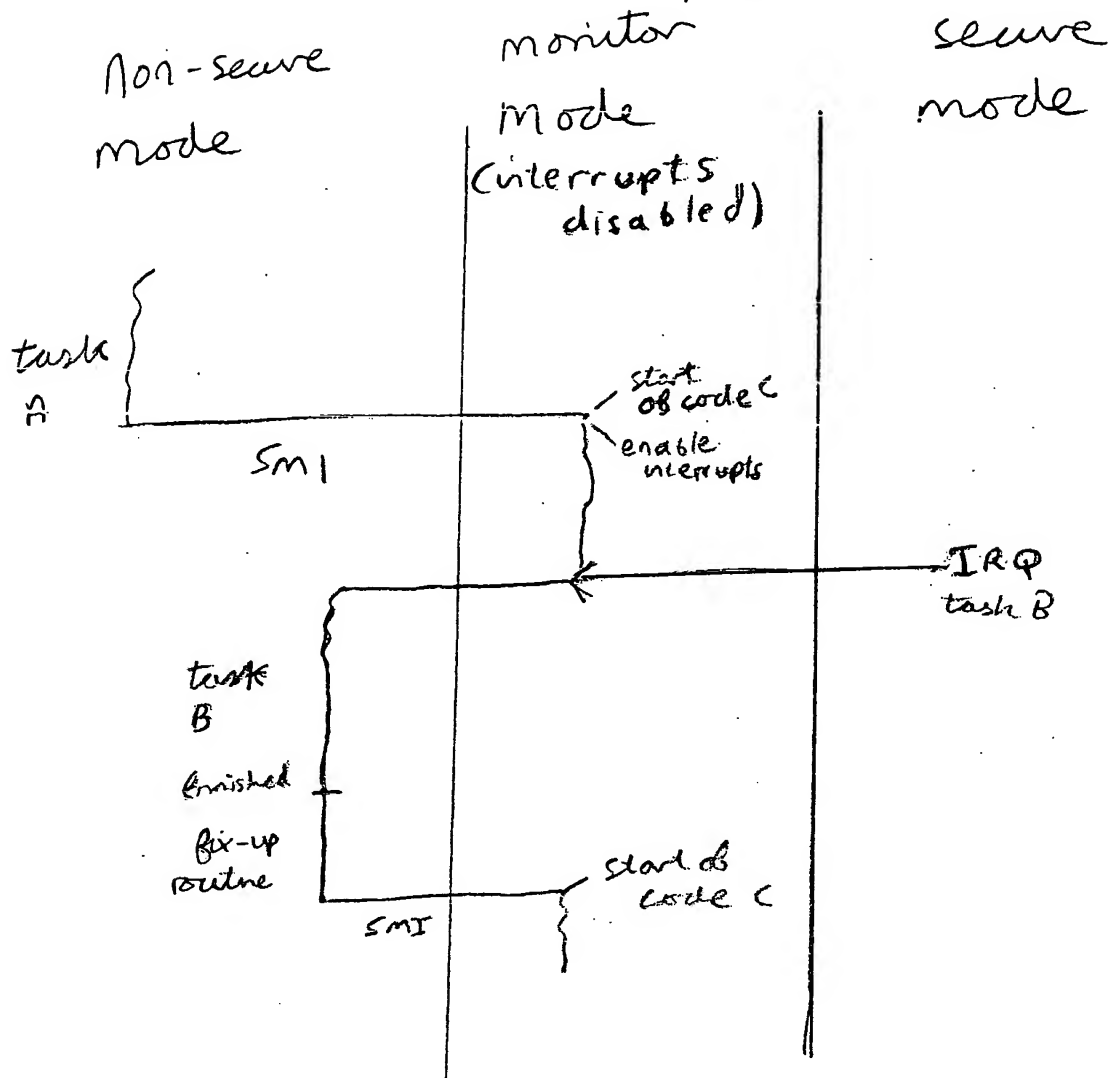 non-secure
mode
monitor
mode
(interrupts
disabled)
secure
mode
task
start
of code C
enable
interrupts
SMI
IRQ
task B
task
B
finished
fix-up
routine
start of
code C
SMI